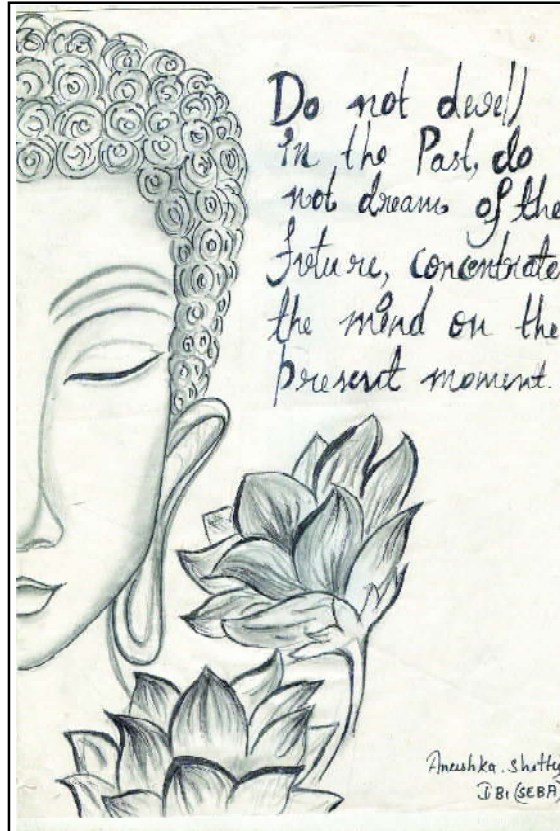 Do not dwell
in the Past, do
not dream of the
future, concentrate
the mind on the
present moment.
Anushka. Shetty